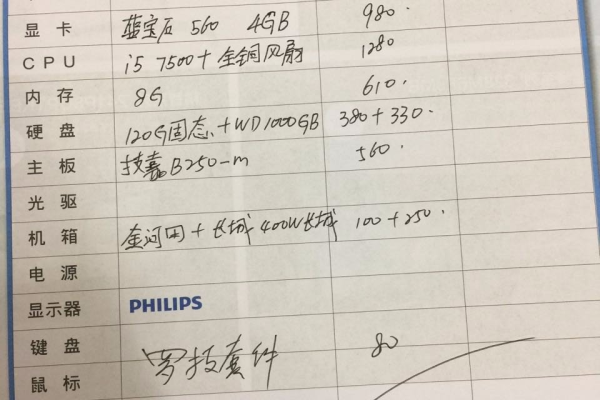 显卡 蓝宝石 560 4GB 980.
CPU i5 7500+全铜风扇 1280
内存 8G 610.
硬盘 120G固态+WD1000GB 380+330.
主板 技嘉B250-m 560.
光驱
机箱 金河田+长城400W长城 100+250.
电源
显示器 PHILIPS
键盘 罗技套件 80
鼠标